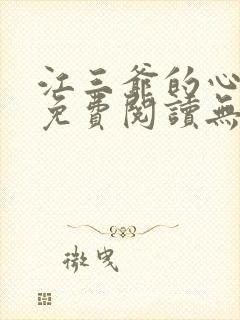 江三爺的心
免費閱讀無
微曳